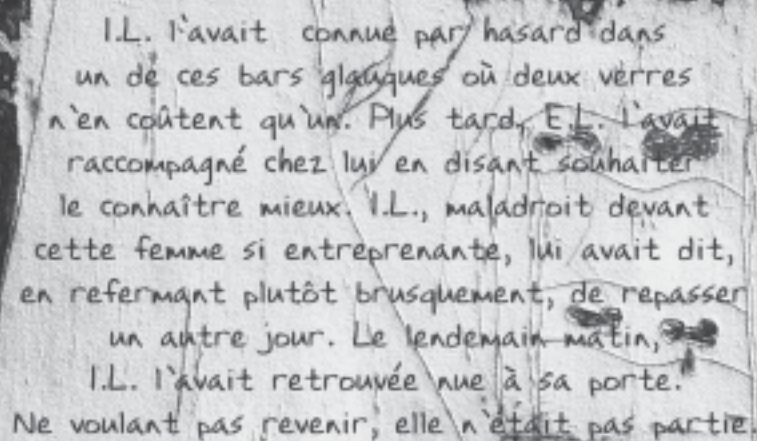 I.L. l'avait connue par hasard dans
un de ces bars glauques où deux verres
n'en coûtent qu'un. Plus tard, E.L. l'avait
raccompagné chez lui en disant souhaiter
le connaître mieux. I.L., maladroit devant
cette femme si entreprenante, lui avait dit,
en refermant plutôt brusquement, de repasser
un autre jour. Le lendemain matin,
I.L. l'avait retrouvée nue à sa porte.
Ne voulant pas revenir, elle n'était pas partie.